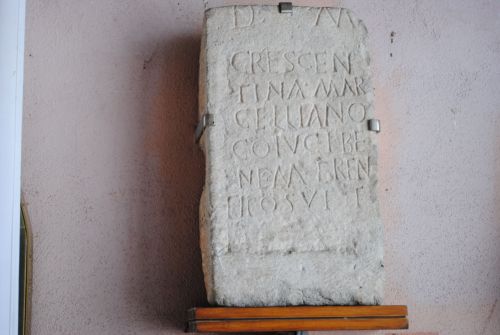 D M
CRESCEN
TINA MAR
CELLIANO
COIVGI BE
NEM EREN
TI POSVIT